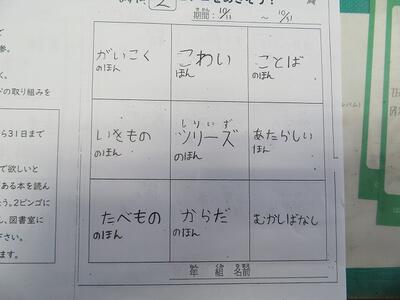 2
期間：10/11 ～ 10/31
がいこく
のほん
こわい
ほん
ことば
のほん
いきもの
のほん
しりいず
シリーズ
のほん
あたらしい
ほん
たべもの
のほん
からだ
のほん
むかしばなし
年 組 名前
参。
く。
ドの取り組みを
ら31日まで
で欲しいと
ある本を読ん
う。2ビンゴに
し、図書室に
下さい。
ます。